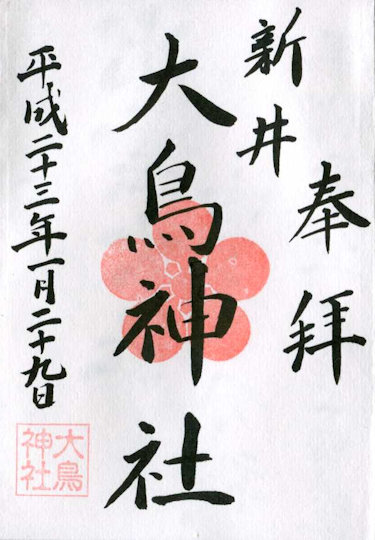 奉拝
新井
大鳥神社
平成二十三年一月二十九日
大鳥
神社